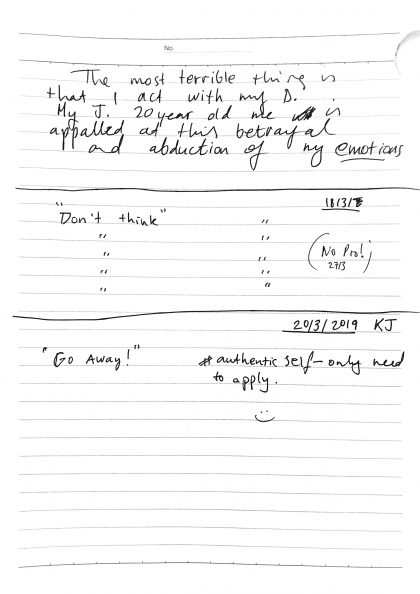 No.
The most terrible thing is
that I act with my D.
My J. 20 year old me is
appalled at this betrayal
and abduction of my emotions
"Don't think" " 18/3/
" "
" " (No Pro!
" " 27/3)
" "
20/3/2019 KJ
"Go Away!" # authentic self - only need
to apply.